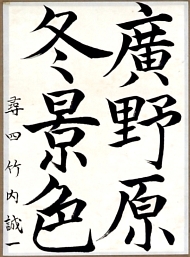 廣野原
冬景色
尋四竹内誠一